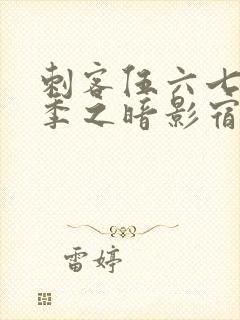 刺客伍六七
季之暗影宿
雷婷